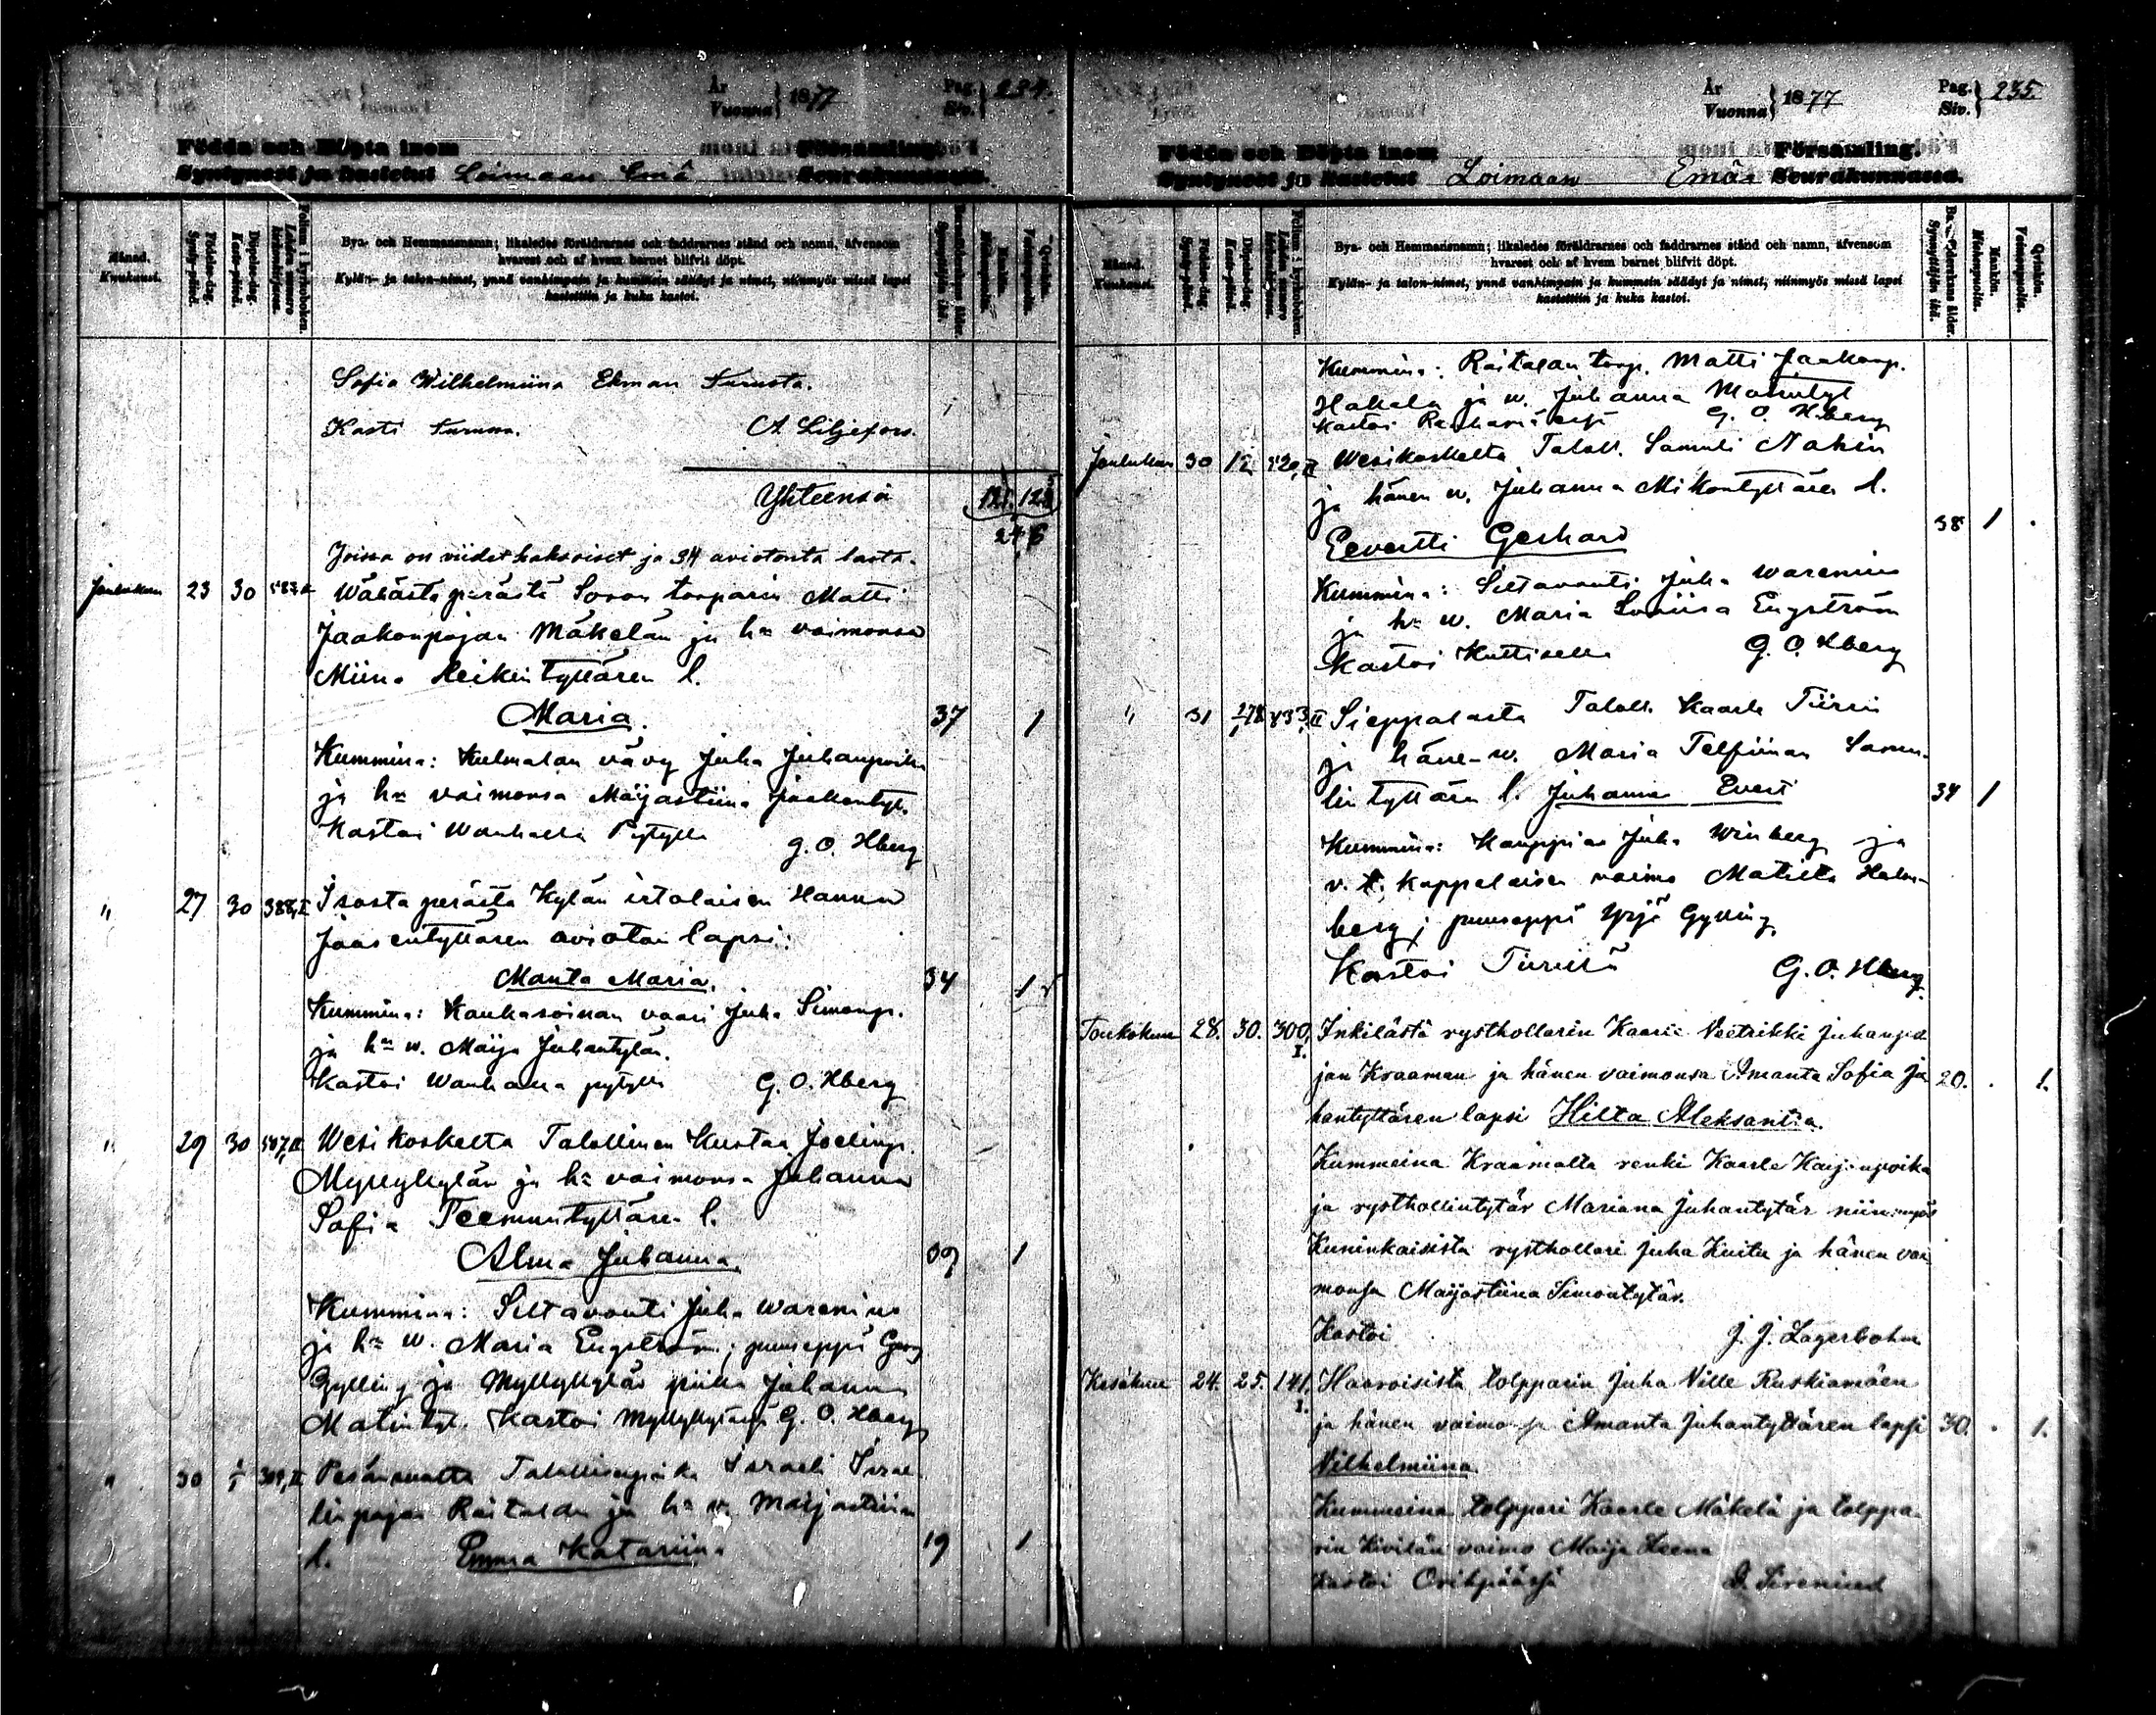 År
Vuonna } 1877
Pag.
Siv. } 234.
Födda och Döpta inom Församling.
Syntyneet ja kastetut Loimaan Emä Seurakunnassa.
Månad.
Kuukausi.
Födelse-dag.
Synty-päivä.
Döpelse-dag.
Kaste-päivä.
Folium i kyrkoboken.
Bya- och Hemmansnamn; likaledes föräldrarnes och faddrarnes stånd och namn, äfvensom
hvarest och af hvem barnet blifvit döpt.
Kylän- ja talon-nimet, ynnä vanhimpain ja kummein säädyt ja nimet, niinmyös missä lapsi
kastettiin ja kuka kastoi.
Barnaföderskans ålder.
Synnyttäjän ikä.
Mankön.
Miehenpuolia.
Qvinkön.
Vaimonpuolia.
Sofia Wilhelmiina Ekman Turusta.
Kasti Turussa. A. Liljefors.
Yhteensä 121. 125
246
Joissa on viidet kaksoiset ja 34 aviotonta lasta.
Joulukuu 23 30 Torparin Matti
Jaakonpojan Mäkelän ja hn vaimonsa
Miina Heikintyttären l.
Maria. 37 1
Kummina: Kulmalan vävy Juha Juhanpoika
ja hn vaimonsa Maijastiina Jaakontyt.
Kastoi Wanhalla Pytyllä G. O. Hberg
" 27 30 388,I Isosta perästä Kylän irtolaisen Hanna
Jaasentyttären aviotoin lapsi:
Manta Maria. 34 1
Kummina: Kauhasoinan vaari Juha Simonp.
ja hn w. Maija Juhantytär.
Kastoi Wanhalla pytyllä G. O. Hberg
" 29 30 Wesikoskelta Talollinen Kustaa Joelinp.
Myllykylän ja hn vaimonsa Johanna
Sofia Teemuntyttären l.
Alma Juhanna. 39 1
Kummina: Siltavouti Juha Warenius
ja hn w. Maria Engström; puuseppä
Gylling ja Myllykylän piika Johanna
Matintyt. Kastoi Myllykylässä G. O. Hberg
" 30 Talollisenpoika Israeli
Raitalan ja hn w. Maijastiina
l. Emma Katariina 19 1
År
Vuonna } 1877
Pag.
Siv. } 235.
Födda och Döpta inom Församling.
Syntyneet ja kastetut Loimaan Emä Seurakunnassa.
Månad.
Kuukausi.
Födelse-dag.
Synty-päivä.
Döpelse-dag.
Kaste-päivä.
Folium i kyrkoboken.
Bya- och Hemmansnamn; likaledes föräldrarnes och faddrarnes stånd och namn, äfvensom
hvarest och af hvem barnet blifvit döpt.
Kylän- ja talon-nimet, ynnä vanhimpain ja kummein säädyt ja nimet, niinmyös missä lapsi
kastettiin ja kuka kastoi.
Barnaföderskans ålder.
Synnyttäjän ikä.
Mankön.
Miehenpuolia.
Qvinkön.
Vaimonpuolia.
Kummina: Raitalan torp. Matti Jaakonp.
Hakala ja w. Juhanna Matintyt
Kastoi G. O. Hberg
Joulukuu 30 Wesikoskelta Taloll. Samuli Nahin
ja hänen w. Juhanna Mikontyttären l.
Eevertti Gerhard 38 1
Kummina: Siltavouti Juha Warenius
ja hn w. Maria Loviisa Engström
Kastoi G. O. Hberg
" 31 Sieppalasta Taloll. Kaarle Tiirin
ja hänen w. Maria Telfiinan Samu-
lin tyttären l. Juhanna Evert 34 1
Kummina: Kauppias Juha Winberg ja
v. t. kappalaisen vaimo Matilta Halm-
berg; puuseppä Yrjö Gylling.
Kastoi Tiirissä G. O. Hberg
Toukokuu 28. 30. 300, I. Inkilästä rysthollarin Kaarle Veetrikki Juhanpo
jan Kraaman ja hänen vaimonsa Amanta Sofia Ju 20. . 1.
hantyttären lapsi Hilta Aleksantia.
Kummeina Kraamalta renki Kaarle Kaijanpoika
ja rysthollintytär Mariana Juhantytär niinmyös
Kuninkaisista rysthollari Juha Knuta ja hänen vai
monsa Maijastiina Simontytär.
Kastoi J. J. Lagerbohm
Kesäkuu 24. 25. 141. I. Haaroisista tolpparin Juha Ville Ruskiamäen
ja hänen vaimonsa Amanta Juhantyttären lapsi 30. . 1.
Vilhelmiina.
Kummeina tolppari Kaarle Mäkelä ja tolppa-
rin Kivilän vaimo Maija Leena
Kastoi Orihpäässä